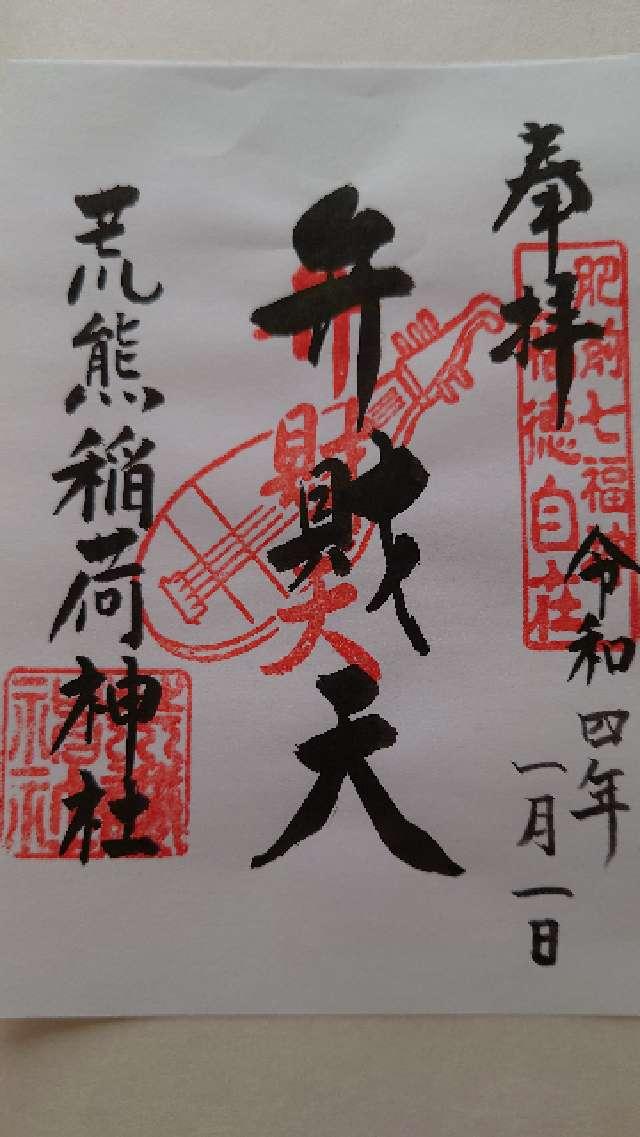 奉拝
肥前七福神
福徳自在
令和四年
一月一日
弁財天
弁財天
荒熊稲荷神社